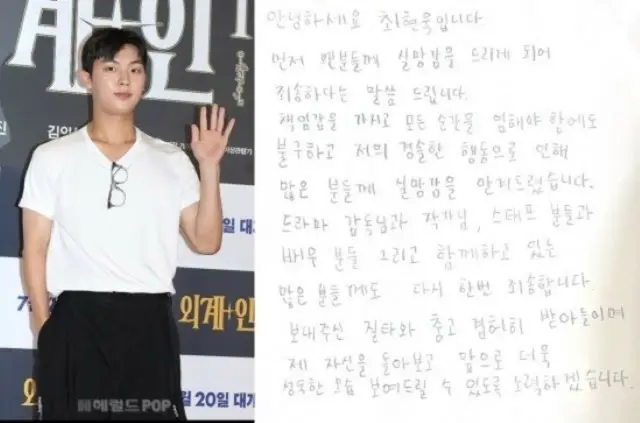 계+인
진
김의
일 대개
7
외계+인
외
헤럴드POP
월 20일 대개
안녕하세요 최현욱입니다
먼저 팬분들께 실망감을 드리게 되어
죄송하다는 말씀 드립니다.
책임감을 가지고 모든 순간을 임해야 함에도
불구하고 저의 경솔한 행동으로 인해
많은 분들께 실망감을 안겨드렸습니다.
드라마 감독님과 작가님, 스태프 분들과
배우 분들 그리고 함께하고 있는
많은 분들께도 다시 한번 죄송합니다.
보내주신 질타와 충고 겸허히 받아들이며
제 자신을 돌아보고 앞으로 더욱
성숙한 모습 보여드릴 수 있도록 노력하겠습니다.